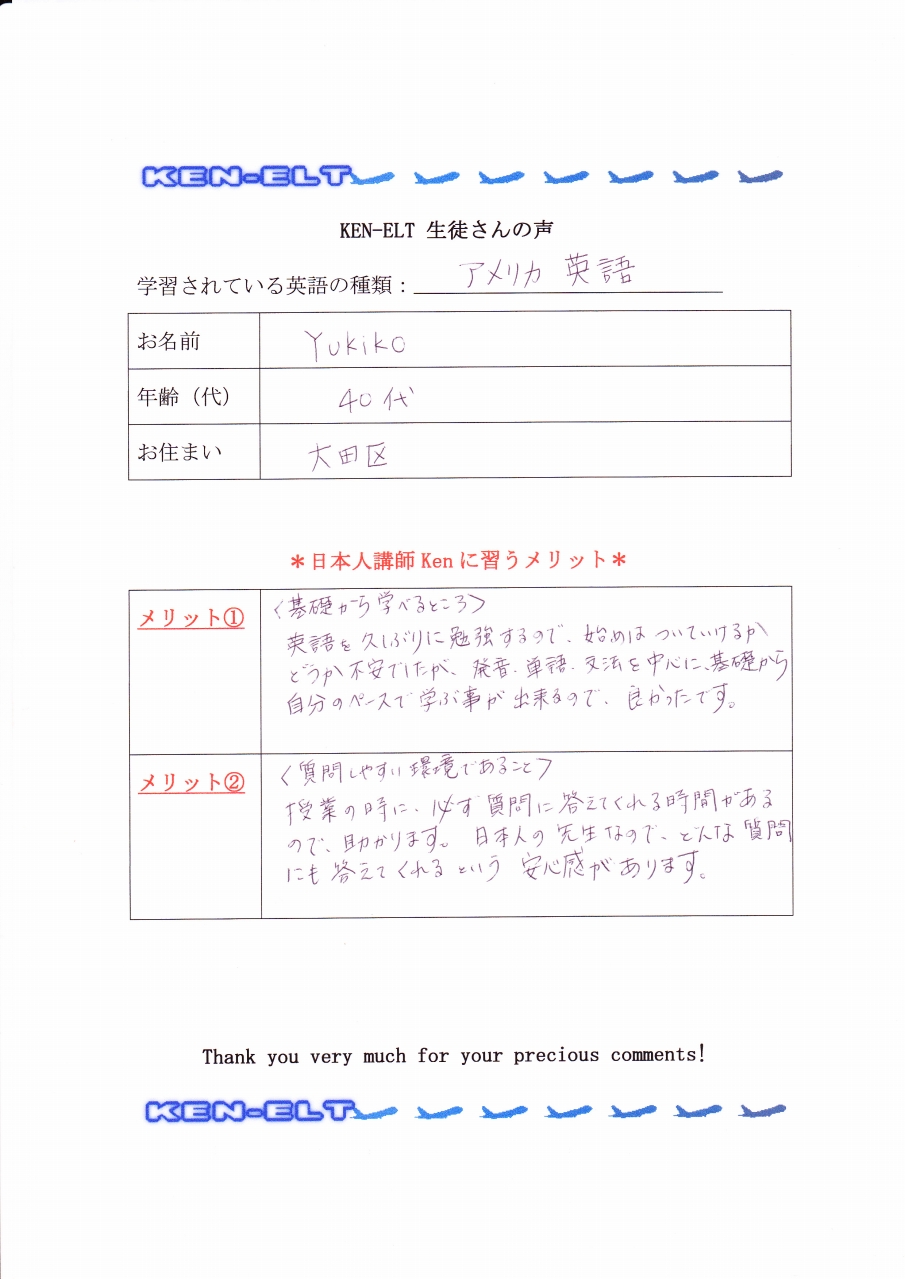 KEN-ELT
KEN-ELT 生徒さんの声
学習されている英語の種類：アメリカ 英語
お名前 Yukiko
年齢（代） 40代
お住まい 大田区
＊日本人講師Kenに習うメリット＊
メリット① 〈基礎から学べるところ〉
英語を久しぶりに勉強するので、始めはついていけるか
どうか不安でしたが、発音、単語、文法を中心に、基礎から
自分のペースで学ぶ事が出来るので、良かったです。
メリット② 〈質問しやすい環境であること〉
授業の時に、必ず質問に答えてくれる時間がある
ので、助かります。日本人の先生なので、どんな質問
にも答えてくれるという安心感があります。
Thank you very much for your precious comments!
KEN-ELT